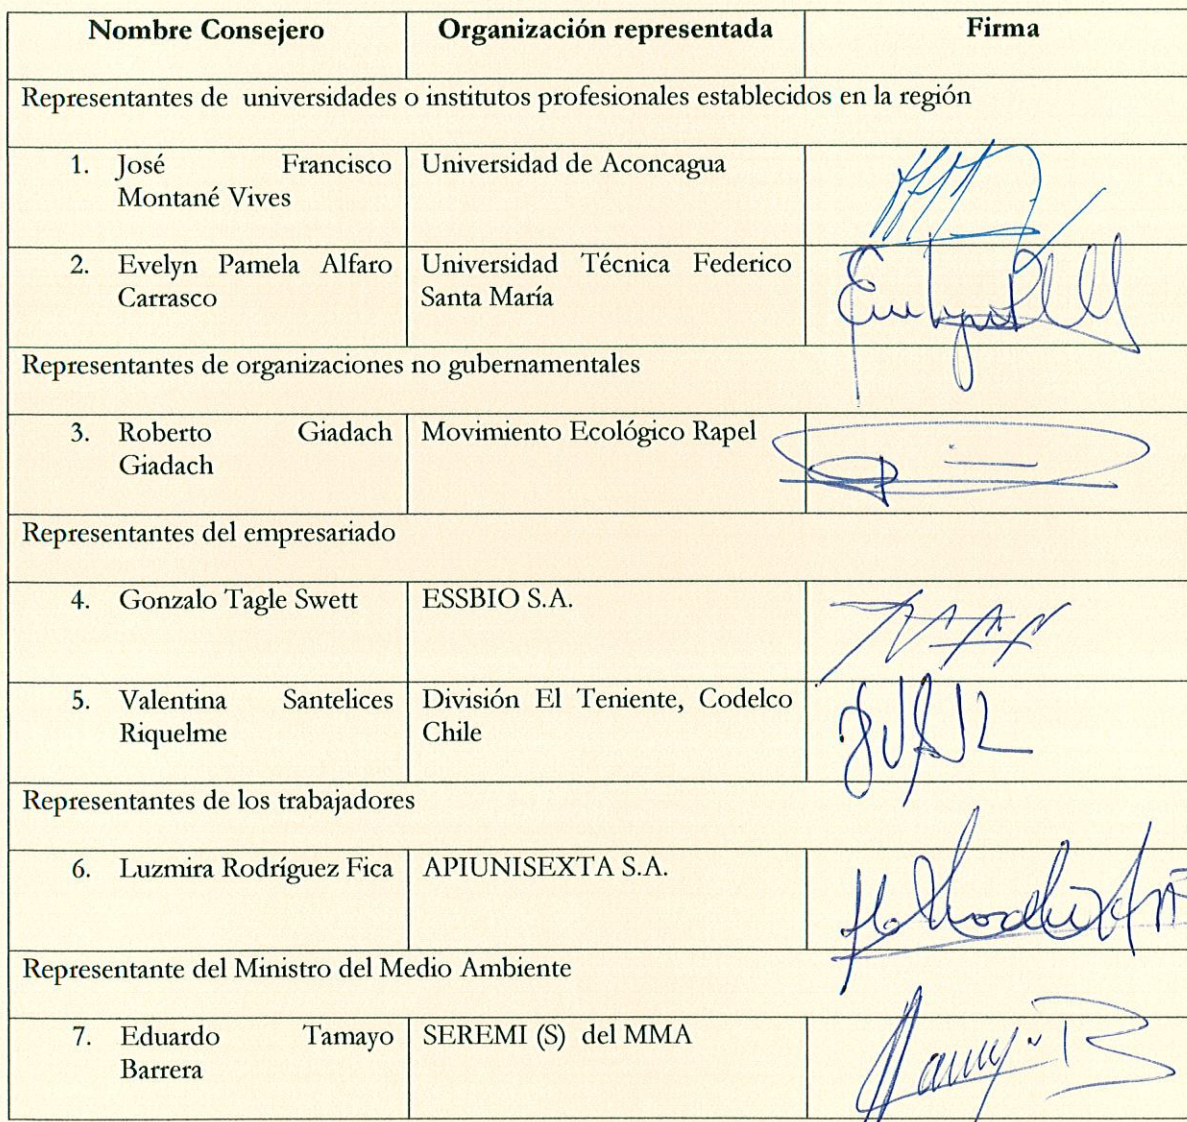 Nombre Consejero Organización representada Firma
Representantes de universidades o institutos profesionales establecidos en la región
1. José Francisco Universidad de Aconcagua
Montané Vives
2. Evelyn Pamela Alfaro Universidad Técnica Federico
Carrasco Santa María
Representantes de organizaciones no gubernamentales
3. Roberto Giadach Movimiento Ecológico Rapel
Giadach
Representantes del empresariado
4. Gonzalo Tagle Swett ESSBIO S.A.
5. Valentina Santelices División El Teniente, Codelco
Riquelme Chile
Representantes de los trabajadores
6. Luzmira Rodríguez Fica APIUNISEXTA S.A.
Representante del Ministro del Medio Ambiente
7. Eduardo Tamayo SEREMI (S) del MMA
Barrera